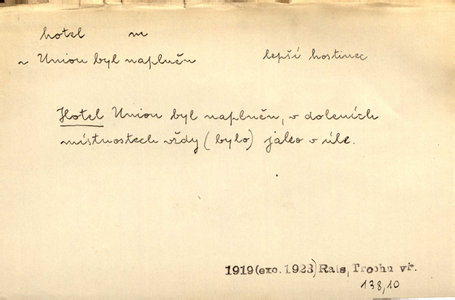 hotel m
~ Union byl naplněn lepší hostinec
Hotel Union byl naplněn, v doleních
místnostech vždy (bylo) jako v úle.
1919 (exc. 1923) Rais, Trochu vř.
138,10